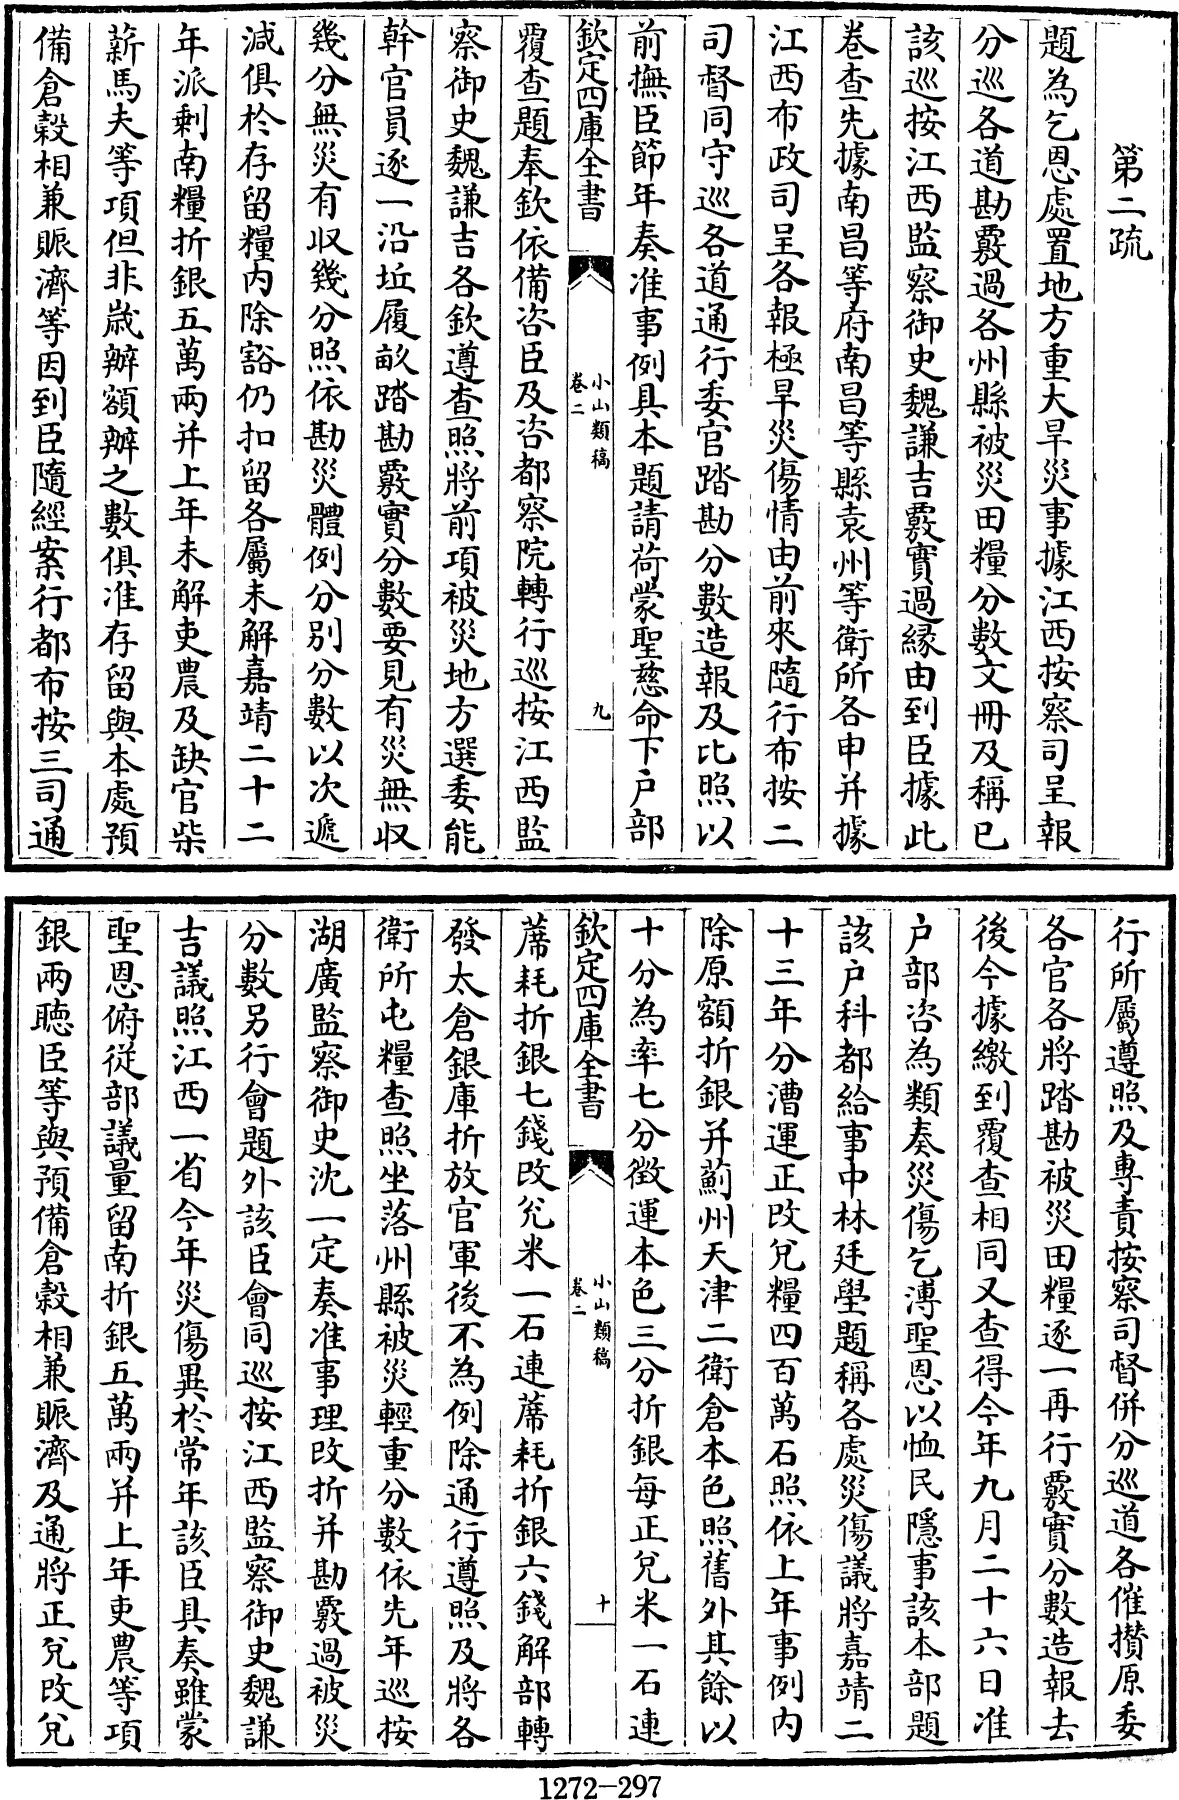 第二疏
題為乞恩處置地方重大旱災事據江西按察司呈報
分巡各道勘覈過各州縣被災田糧分數文冊及稱已
該巡按江西監察御史魏謙吉覈實過縁由到臣據此
卷查先據南昌等府南昌等縣袁州等衛所各申并據
江西布政司呈各報極旱災傷情由前來隨行布按二
司督同守巡各道通行委官踏勘分數造報及比照以
前撫臣節年奏准事例具本題請荷蒙聖慈命下户部
欽定四庫全書
小山類稿
卷二
九
覆查題奉欽依備咨臣及咨都察院轉行巡按江西監
察御史魏謙吉各欽遵查照將前項被災地方選委能
幹官員逐一沿坵履畝踏勘覈實分數要見有災無収
幾分無災有収幾分照依勘災體例分别分數以次遞
減俱於存留糧内除豁仍扣留各屬未解嘉靖二十二
年派剰南糧折銀五萬兩并上年未解吏農及缺官柴
薪馬夫等項但非歳辦額辦之數俱准存留與本處預
備倉榖相兼賑濟等因到臣隨經案行都布按三司通
行所屬遵照及專責按察司督併分巡道各催攅原委
各官各將踏勘被災田糧逐一再行覈實分數造報去
後今據繳到覆查相同又查得今年九月二十六日准
户部咨為類奏災傷乞溥聖恩以恤民隱事該本部題
該户科都給事中林廷㙾題稱各處災傷議將嘉靖二
十三年分漕運正改兌糧四百萬石照依上年事例内
除原額折銀并薊州天津二衛倉本色照舊外其餘以
十分為率七分徴運本色三分折銀每正兌米一石連
欽定四庫全書
小山類稿
卷二
十
蓆耗折銀七錢改兌米一石連蓆耗折銀六錢解部轉
發太倉銀庫折放官軍後不為例除通行遵照及將各
衛所屯糧查照坐落州縣被災輕重分數依先年巡按
湖廣監察御史沈一定奏准事理改折并勘覈過被災
分數另行會題外該臣會同巡按江西監察御史魏謙
吉議照江西一省今年災傷異於常年該臣具奏雖蒙
聖恩俯從部議量留南折銀五萬兩并上年吏農等項
銀兩聴臣等與預備倉榖相兼賑濟及通將正兌改兌
1272-297